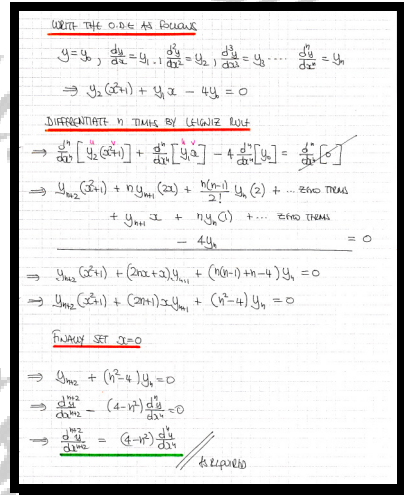 WRITE THE O.D.E AS FOLLOWS
y = y₀, dy/dx = y₁, d²y/dx² = y₂, d³y/dx³ = y₃ .... dⁿy/dxⁿ = yₙ
⇒ y₂(x²+1) + y₁x − 4y₀ = 0
DIFFERENTIATE n TIMES BY LEIGNIZ RULE
u v u v
⇒ dⁿ/dxⁿ[y₂(x²+1)] + dⁿ/dxⁿ[y₁x] − 4 dⁿ/dxⁿ[y₀] = dⁿ/dxⁿ[0]
⇒ yₙ₊₂(x²+1) + nyₙ₊₁(2x) + n(n-1)/2! yₙ(2) + ... ZERO TERMS
+ yₙ₊₁ x + nyₙ(1) + ... ZERO TERMS
− 4yₙ = 0
⇒ yₙ₊₂(x²+1) + (2nx+x)yₙ₊₁ + (n(n-1)+n-4)yₙ = 0
⇒ yₙ₊₂(x²+1) + (2n+1)xyₙ₊₁ + (n²-4)yₙ = 0
FINALLY SET x=0
⇒ yₙ₊₂ + (n²-4)yₙ = 0
⇒ dⁿ⁺²y/dxⁿ⁺² − (4-n²) dⁿy/dxⁿ = 0
⇒ dⁿ⁺²y/dxⁿ⁺² = (4-n²) dⁿy/dxⁿ
AS REQUIRED